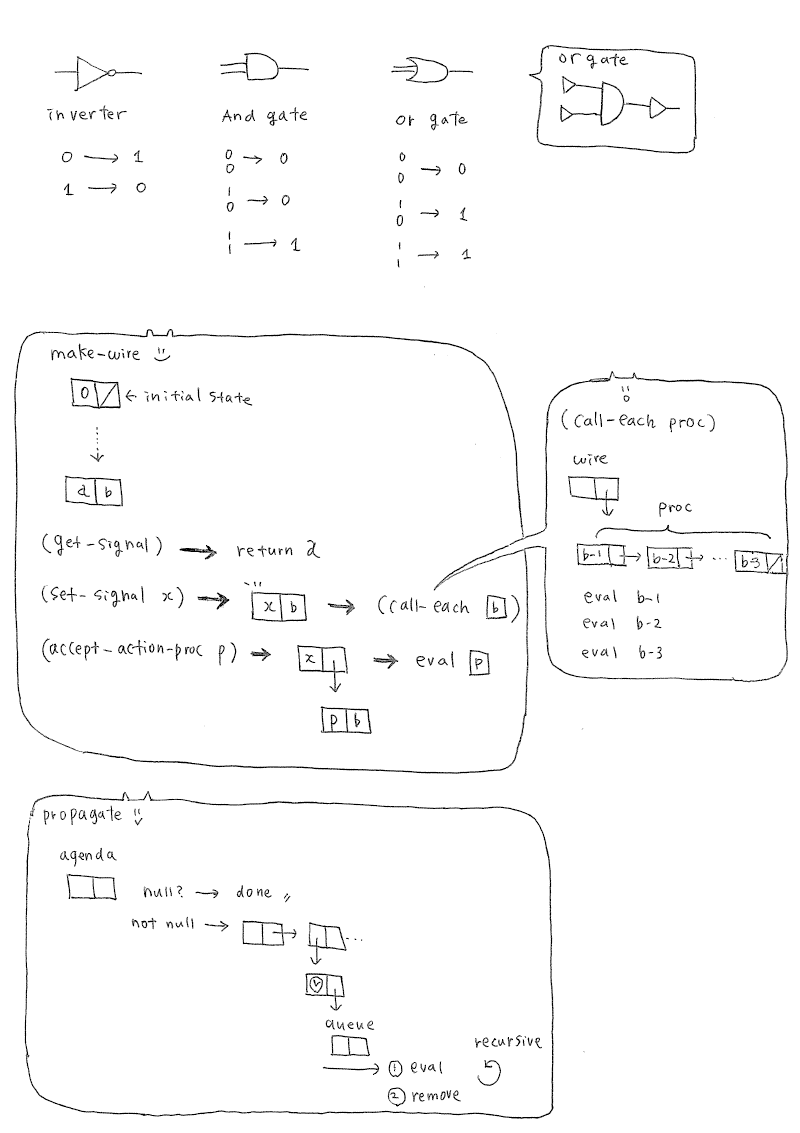 inverter
0 → 1
1 → 0
And gate
0
0 → 0
1
0 → 0
1
1 → 1
or gate
0
0 → 0
1
0 → 1
1
1 → 1
or gate
make-wire
0 ← initial state
a b
(get-signal) → return a
(set-signal x) → x b → (call-each b)
(accept-action-proc p) → x → eval p
p b
(call-each proc)
wire
proc
b-1 → b-2 → ... b-3
eval b-1
eval b-2
eval b-3
propagate
agenda
null? → done
not null → ...
queue
① eval
② remove
recursive